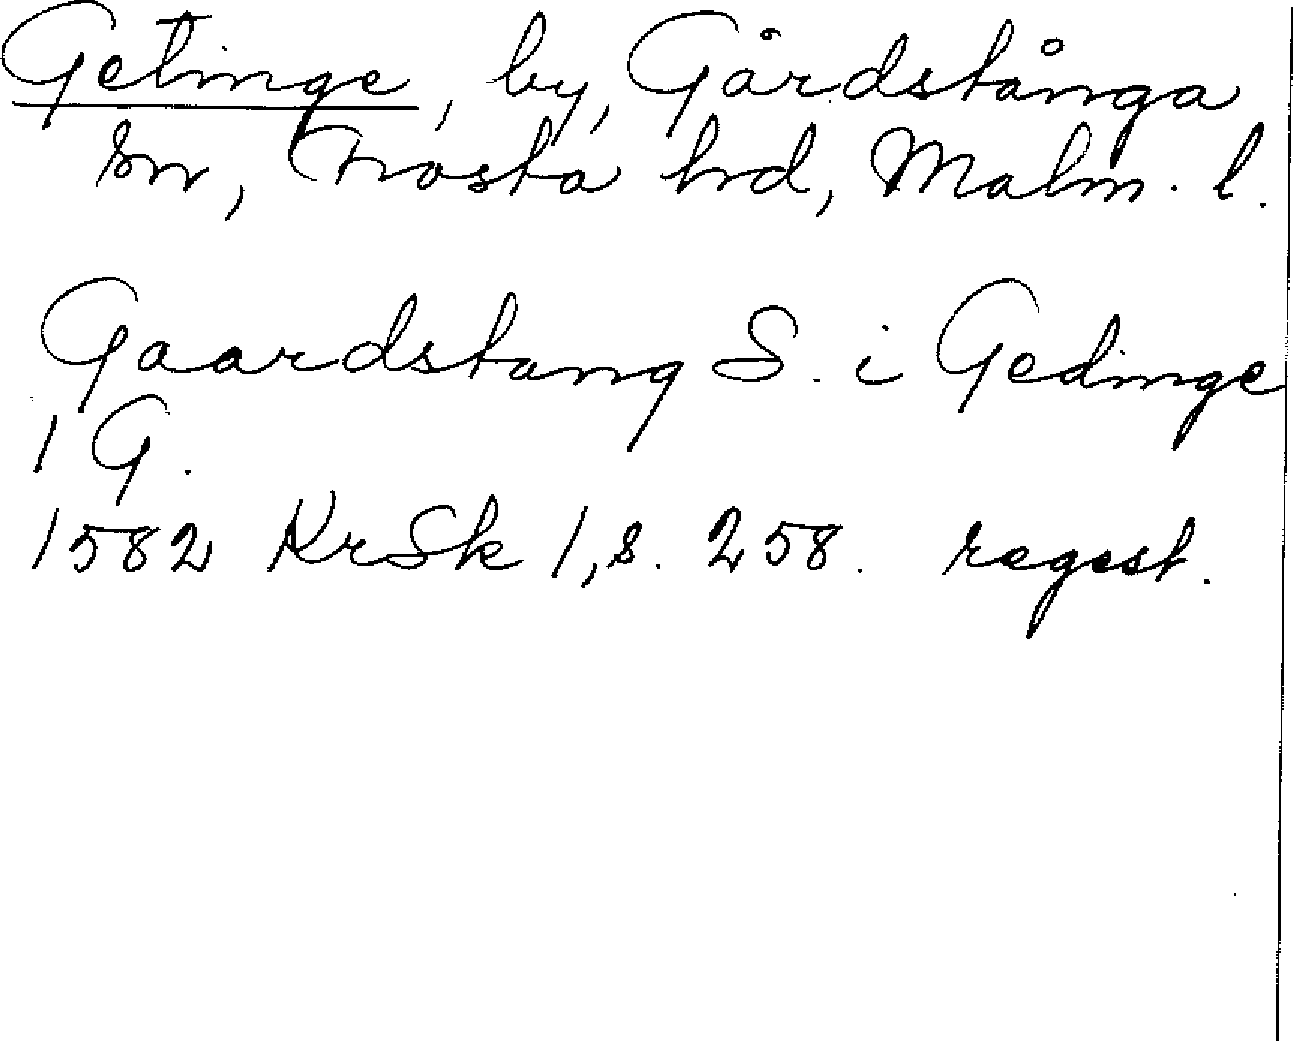 Getinge, by, Gårdstånga
sn, Frosta hd, Malm. l.
Gaardstang S. i Gedinge
1 G.
1582 KrSk 1, s. 258. regest.